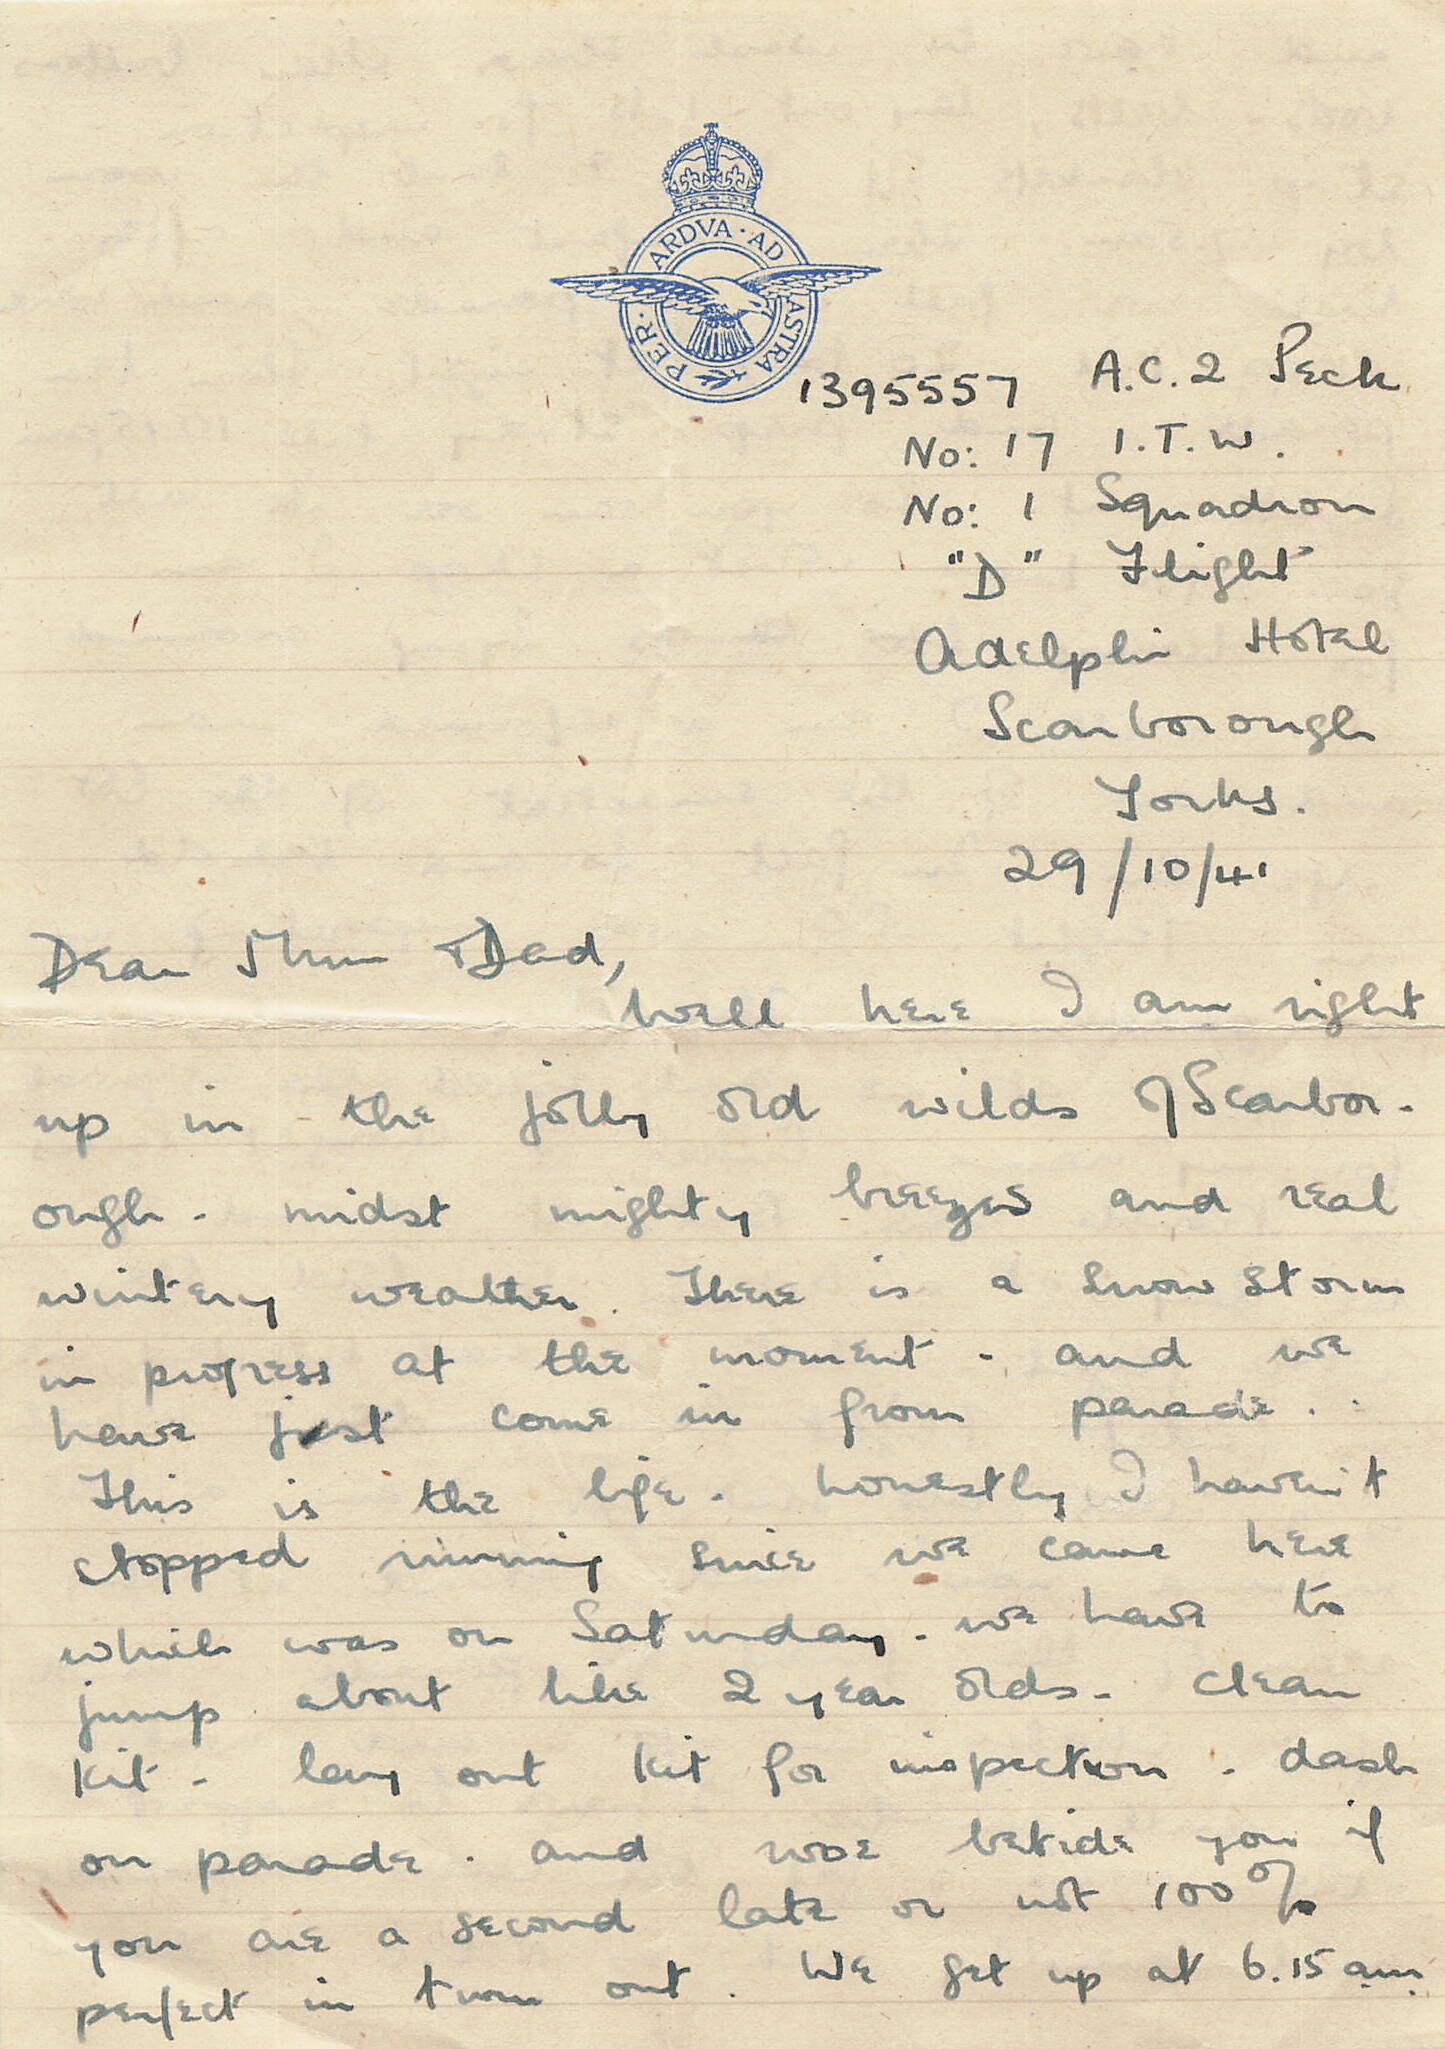 PER · ARDVA · AD ASTRA
1395557 A.C.2 Peck
No: 17 I.T.W.
No: 1 Squadron
"D" Flight
Adelphi Hotel
Scarborough
Yorks.
29/10/41
Dear Mum + Dad,
Well here I am right
up in the jolly old wilds of Scarbor-
ough - midst mighty breezes and real
wintery weather. There is a snow storm
in progress at the moment - and we
have just come in from parade..
This is the life - honestly I haven't
stopped running since we came here
which was on Saturday. We have to
jump about like 2 year olds - clean
kit - lay out kit for inspection - dash
on parade - and woe betide you if
you are a second late or not 100%
perfect in turn out. We get up at 6.15 am.